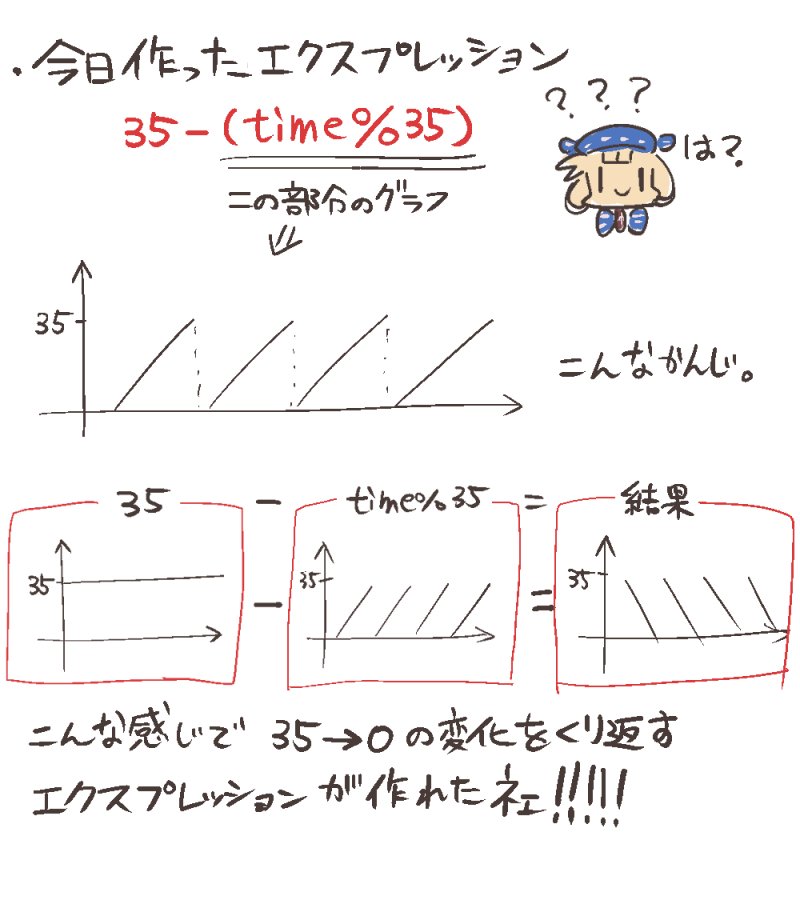 ・今日作ったエクスプレッション
35-(time%35)
???
は?
この部分のグラフ
35
こんなかんじ。
35 - time%35 = 結果
35 - 35 = 35
こんな感じで 35→0の変化をくり返す
エクスプレッションが作れたネェ!!!!!